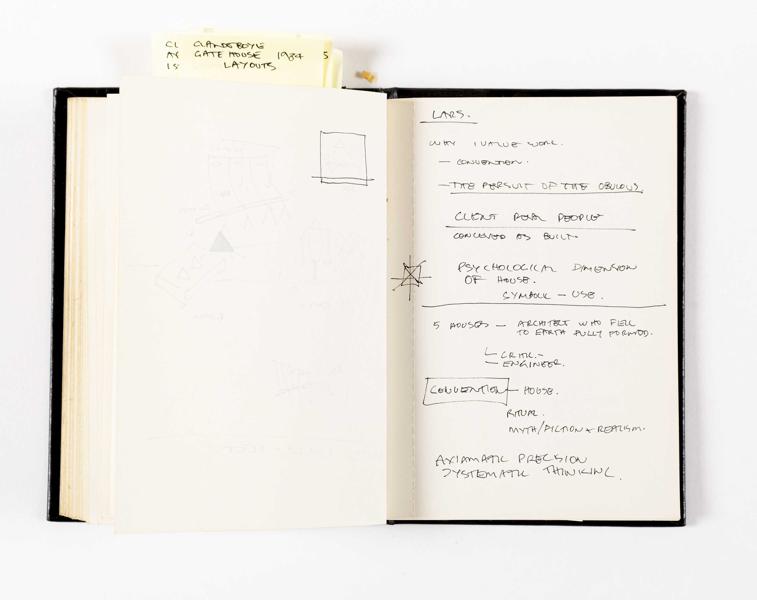 CL CLANDEBOYE
AY GATE HOUSE 1984 5
IS LAYOUTS
LARS.
WHY I VALUE WORK.
— CONVENTION.
— THE PERSUIT OF THE OBVIOUS
CLIENT REAL PEOPLE
CONCEIVED AS BUILT
PSYCHOLOGICAL DIMENSION
OF HOUSE.
SYMBOLIC — USE.
5 HOUSES — ARCHITECT WHO FELL
TO EARTH FULLY FORMED.
— CRITIC —
— ENGINEER.
CONVENTION — HOUSE.
RITUAL.
MYTH/FICTION + REALISM.
AXIAMATIC PRECISION
SYSTEMATIC THINKING.